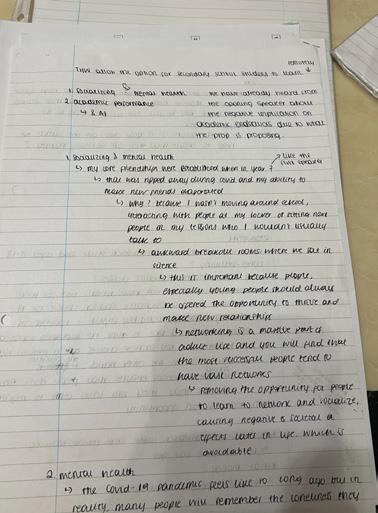 remotely
THW allow the option for secondary school students to learn ↓
1. Socializing & mental health
2. academic performance
↳ & AI
we have already heard from
the opening speaker about
the negative implication on
academic endeavours due to what
the prop is proposing.
1. Socializing & mental health
↳ my core friendships were established when in year 7
→ like the first speaker
↳ that was ripped away during covid and my ability to
make new friends evaporated
↳ Why? because I wasn't moving around school,
interacting with people at my locker or sitting near
people in my lessons who I wouldn't usually
talk to
↳ awkward breakout rooms where we sat in
silence
↳ this is important because people,
especially young people should always
be offered the opportunity to thrive and
make new relationships
↳ networking is a massive part of
adult life and you will find that
the most successful people tend to
have vast networks
↳ removing the opportunity for people
to learn to network and socialize,
causing negative societal
effects later in life which is
avoidable
2. mental health
↳ the covid-19 pandemic feels like so long ago but in
reality, many people will remember the loneliness they